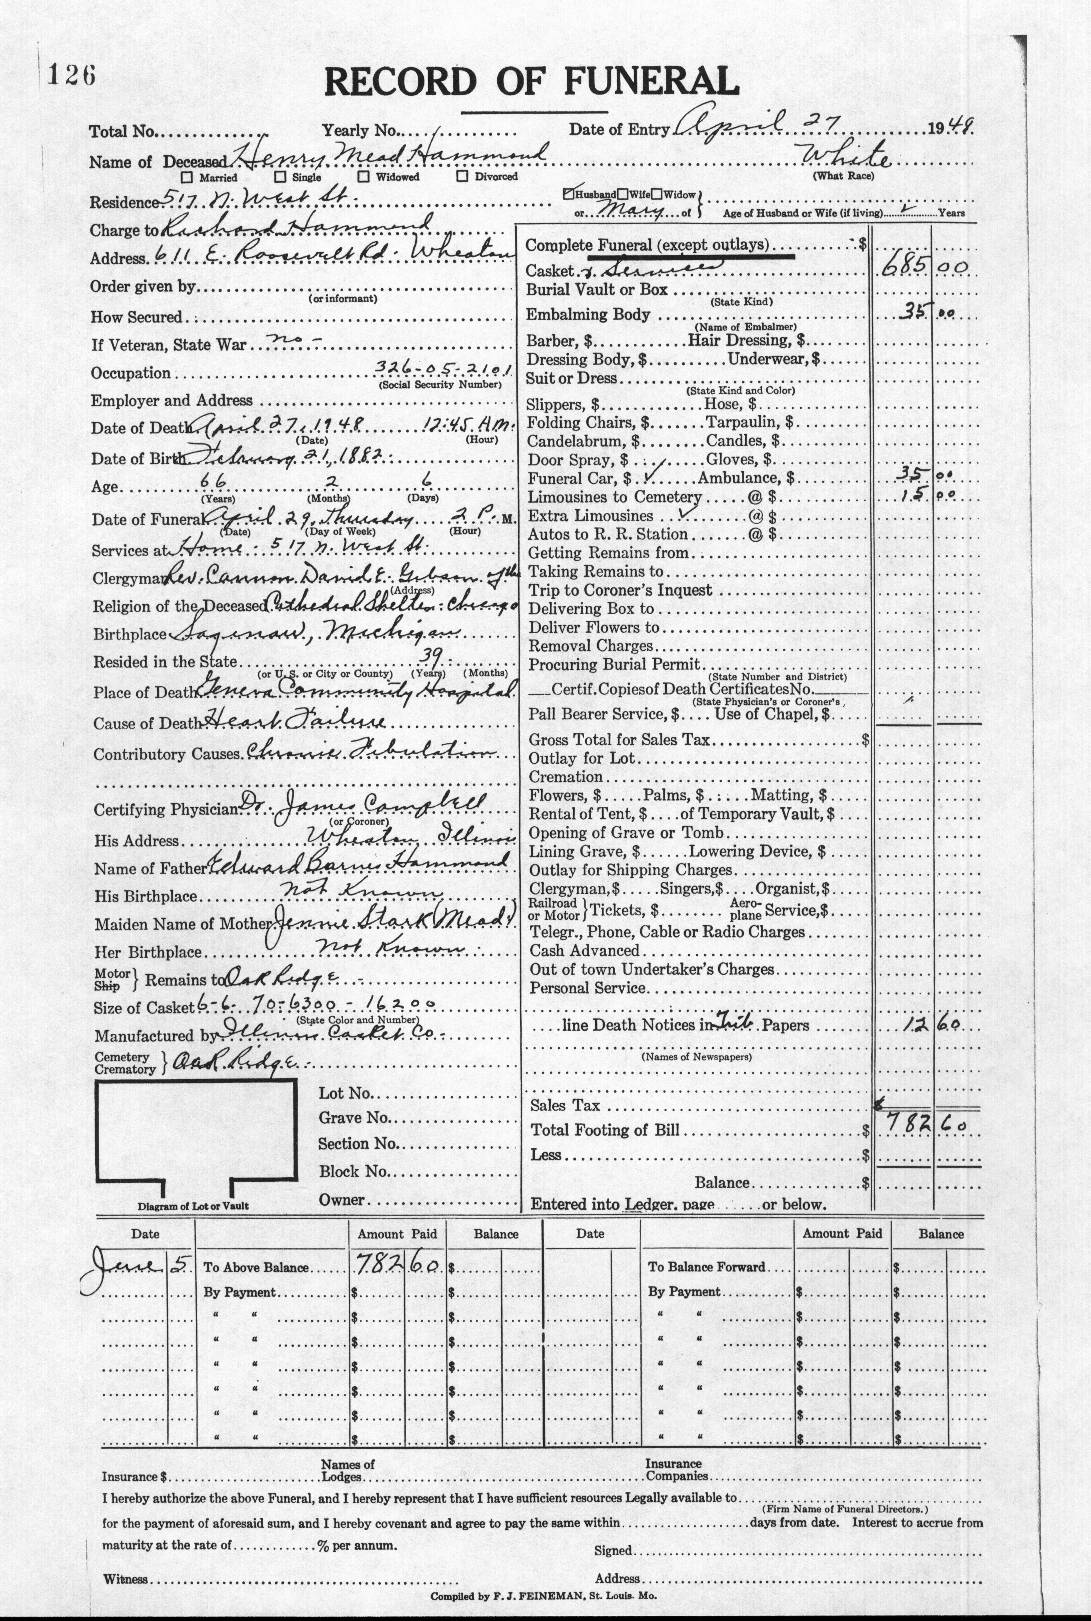 126
RECORD OF FUNERAL
Total No. Yearly No. Date of Entry April 27 1948
Name of Deceased Henry Mead Hammond White
☐ Married ☐ Single ☐ Widowed ☐ Divorced (What Race)
Residence 517 N. West St. ☑Husband☐Wife☐Widow
or Mary of Age of Husband or Wife (if living) Years
Charge to Richard Hammond
Address 611 E. Roosevelt Rd. Wheaton
Order given by
(or informant)
How Secured
If Veteran, State War no -
Occupation 326-05-2101
(Social Security Number)
Employer and Address
Date of Death April 27, 1948 12:45 A.M.
(Date) (Hour)
Date of Birth February 21, 1882
Age 66 2 6
(Years) (Months) (Days)
Date of Funeral April 29, Thursday 2 P. M.
(Date) (Day of Week) (Hour)
Services at Home - 517 N. West St.
Clergyman Rev. Cannon David E. Gibson of the
(Address)
Religion of the Deceased Cathedral Shelter: Chicago
Birthplace Saginaw, Michigan
Resided in the State 39
(or U. S. or City or County) (Years) (Months)
Place of Death Geneva Community Hospital
Cause of Death Heart Failure
Contributory Causes Chronic Fibulation
Certifying Physician Dr. James Campbell
(or Coroner)
His Address Wheaton, Illinois
Name of Father Edward Hammond
His Birthplace not Known
Maiden Name of Mother Jennie Stark (Mead)
Her Birthplace not Known
Motor
Ship } Remains to Oak Ridge
Size of Casket 6-6 70-6300 - 16200
(State Color and Number)
Manufactured by Illinois Casket Co.
Cemetery
Crematory } Oak Ridge
Lot No.
Grave No.
Section No.
Block No.
Owner
Diagram of Lot or Vault
Complete Funeral (except outlays) $
Casket & Services 685 00
Burial Vault or Box
(State Kind)
Embalming Body 35 00
(Name of Embalmer)
Barber, $ Hair Dressing, $
Dressing Body, $ Underwear, $
Suit or Dress
(State Kind and Color)
Slippers, $ Hose, $
Folding Chairs, $ Tarpaulin, $
Candelabrum, $ Candles, $
Door Spray, $ Gloves, $
Funeral Car, $ ✓ Ambulance, $ 35 00
Limousines to Cemetery @ $ 15 00
Extra Limousines ✓ @ $
Autos to R. R. Station @ $
Getting Remains from
Taking Remains to
Trip to Coroner's Inquest
Delivering Box to
Deliver Flowers to
Removal Charges
Procuring Burial Permit
(State Number and District)
Certif. Copies of Death Certificates No.
(State Physician's or Coroner's)
Pall Bearer Service, $ Use of Chapel, $
Gross Total for Sales Tax $
Outlay for Lot
Cremation
Flowers, $ Palms, $ Matting, $
Rental of Tent, $ of Temporary Vault, $
Opening of Grave or Tomb
Lining Grave, $ Lowering Device, $
Outlay for Shipping Charges
Clergyman, $ Singers, $ Organist, $
Railroad
or Motor } Tickets, $ Aero-
plane Service, $
Telegr., Phone, Cable or Radio Charges
Cash Advanced
Out of town Undertaker's Charges
Personal Service
line Death Notices in Trib. Papers 12 60
(Names of Newspapers)
Sales Tax
Total Footing of Bill $ 782 60
Less $
Balance $
Entered into Ledger, page or below.
Date Amount Paid Balance Date Amount Paid Balance
June 5 To Above Balance 782 60 $ To Balance Forward $
By Payment $ $ By Payment $ $
" " $ $ " " $ $
" " $ $ " " $ $
" " $ $ " " $ $
" " $ $ " " $ $
" " $ $ " " $ $
" " $ $ " " $ $
Insurance $ Names of Lodges Insurance Companies
I hereby authorize the above Funeral, and I hereby represent that I have sufficient resources Legally available to
(Firm Name of Funeral Directors.)
for the payment of aforesaid sum, and I hereby covenant and agree to pay the same within days from date. Interest to accrue from
maturity at the rate of % per annum.
Signed
Witness Address
Compiled by F. J. FEINEMAN, St. Louis. Mo.